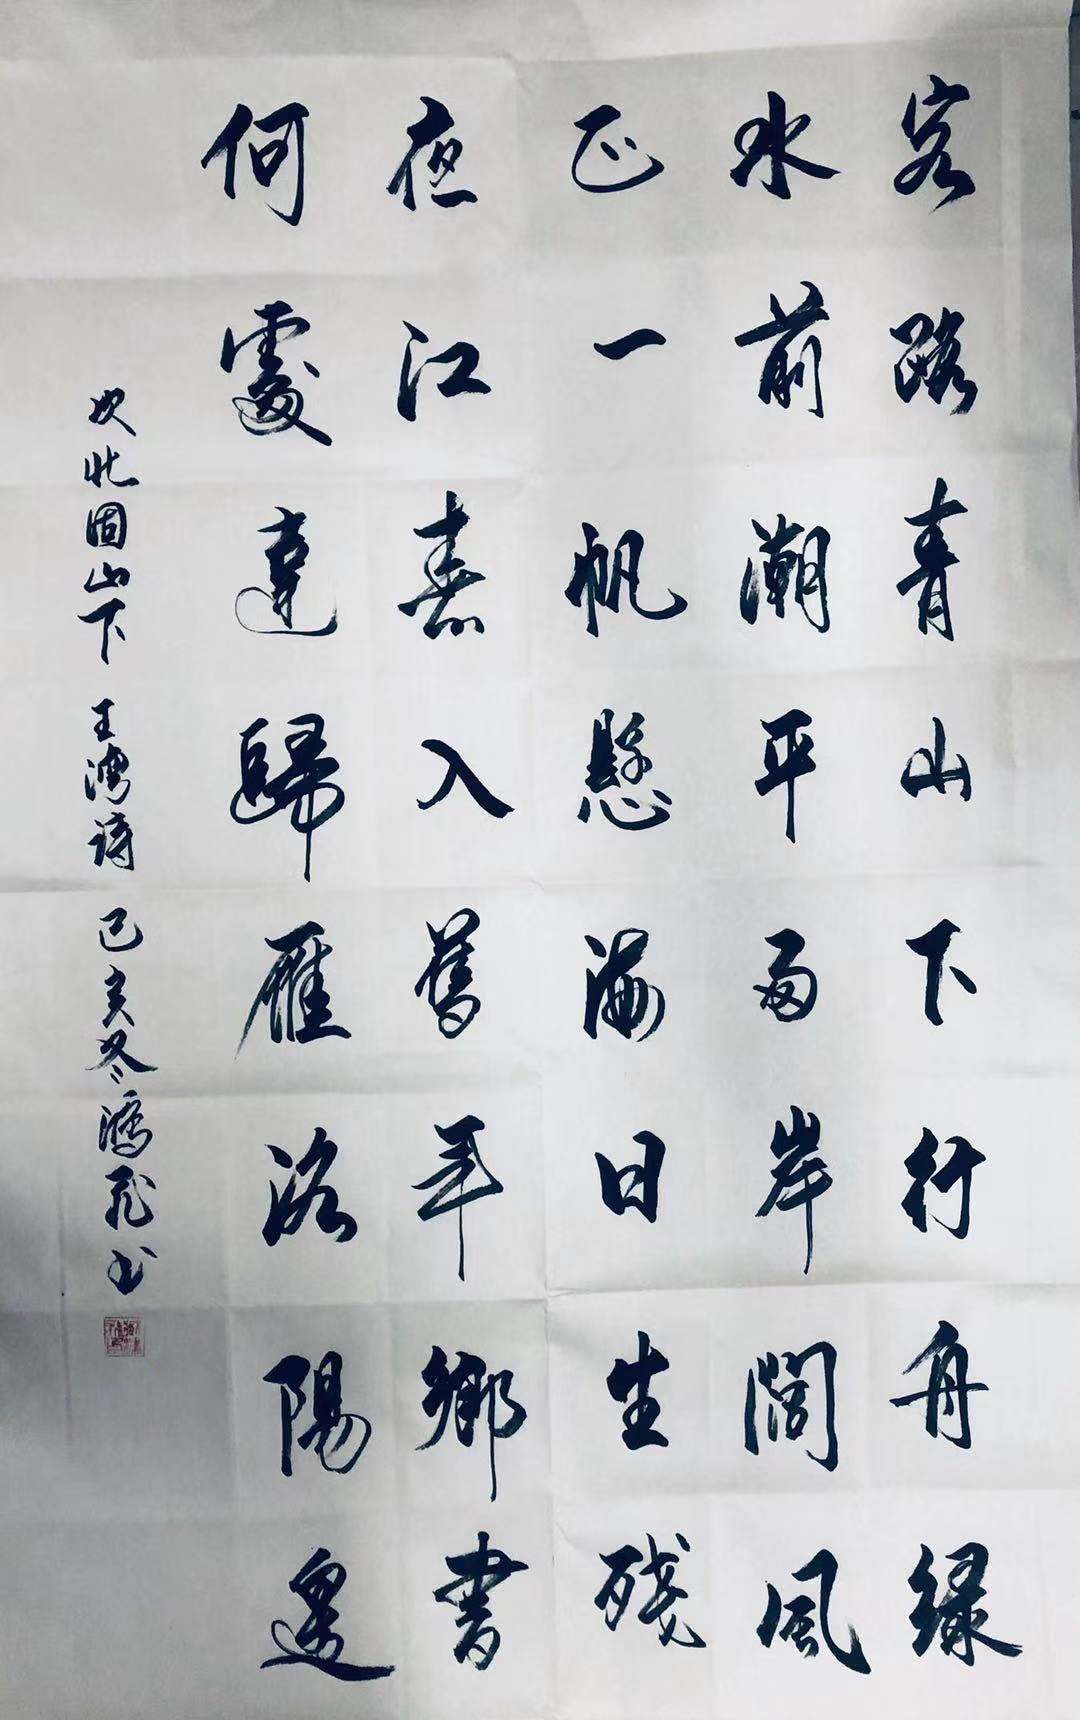 客路青山下行舟緑
水前潮平两岸闊風
正一帆懸海日生殘
夜江春入舊年鄉書
何處達歸雁洛陽邊
次北固山下 王灣詩 己亥冬鴻飛书